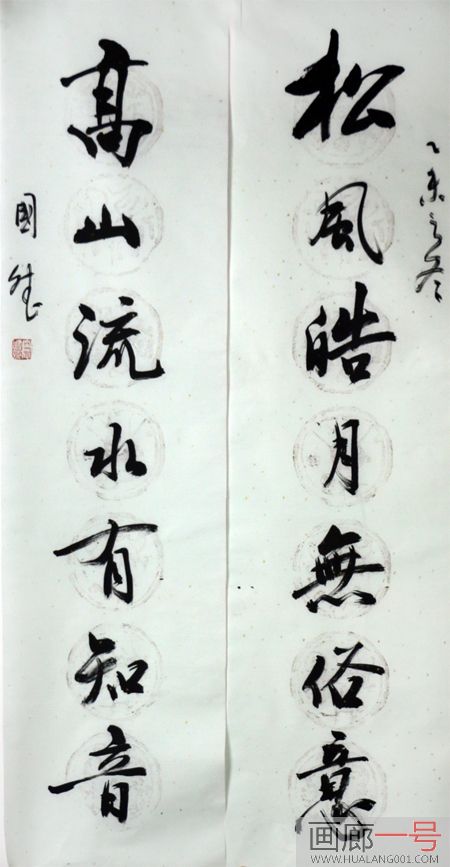 乙未之冬
松風皓月無俗意
髙山流水有知音
國
画廊一号
WWW.HUALANG001.COM